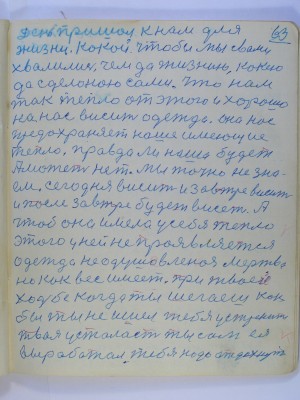 день пришол к нам для 63
жизни. Какой, чтобы мы сами
хвалились, чем да жизнию, какою
да сделоною сами. Что нам
так тепло от этого и хорошо
на нас висит одежда. она нас
предохраняет наше имеющие
тепло, правда ли наша будет
А может нет. мы точно не зна-
ем. сегодня висит и завтре висит
и после завтре будет висет. А
чтоб она имела у себя тепло
этого у ней не проявляется
одежда не одушовленая мертва
но как вес имеет. при твоей
ходьбе когда ты шегаеш как
бы ты не шил тебя устранит
твая усталаст ты сам ея
выработал, тебя надо отдахнуть